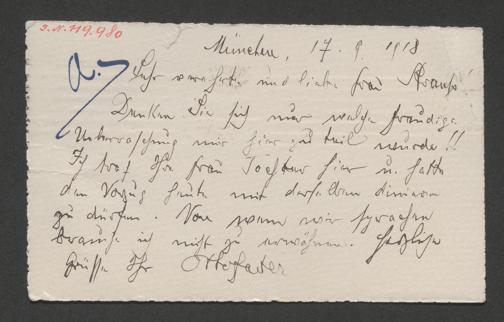 J.N. 119.980
München, 17. 9. 1918
a.
Sehr verehrte und liebe Frau Strauss!
Denken Sie sich nur welche freudige
Ueberraschung mir hier zu teil wurde!!
Ich traf Ihre Frau Tochter hier u. hatte
den Vorzug heute mit derselben dinieren
zu dürfen. Von wem wir sprachen
brauche ich nicht zu erwähnen. Herzliche
Grüsse Ihr